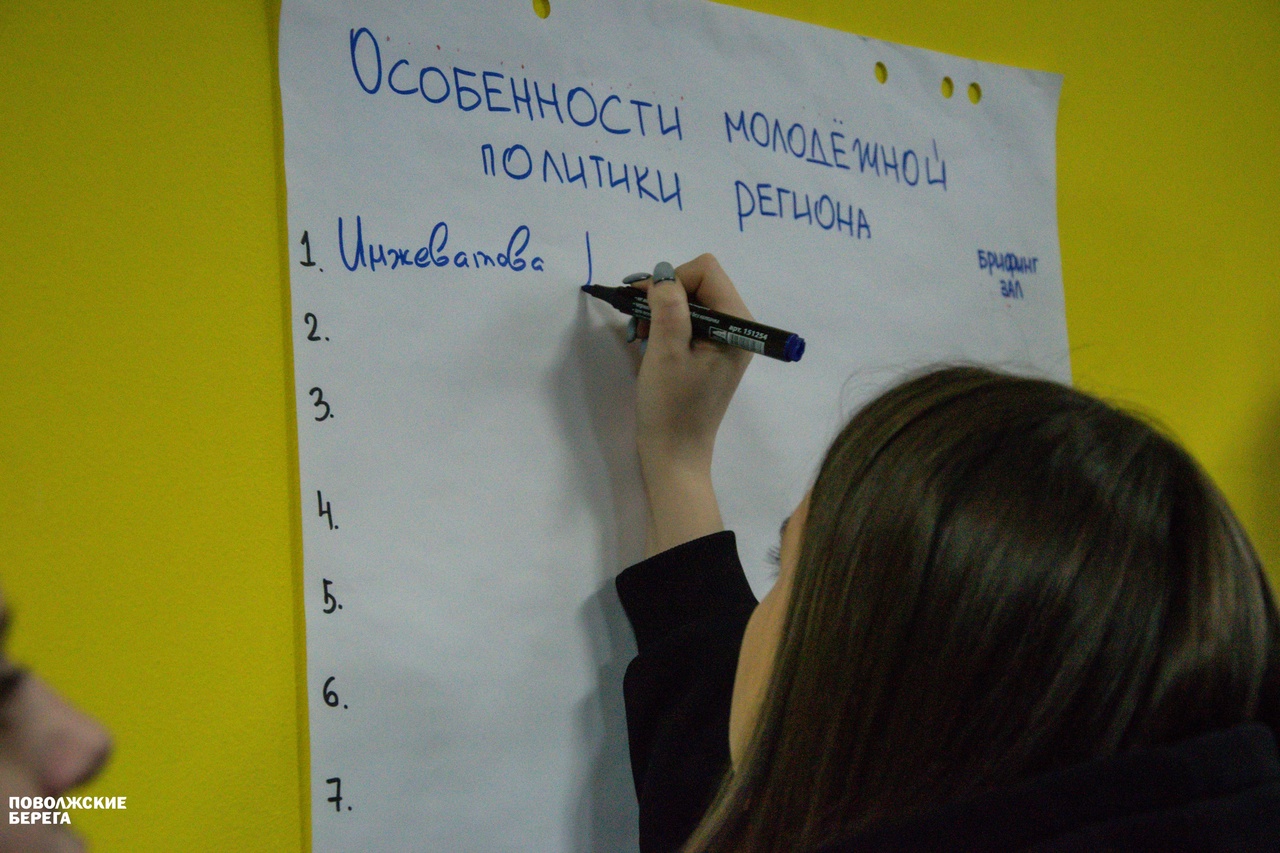 Особенности молодёжной
политики региона
Брифинг
зал
1. Инжеватова
2.
3.
4.
5.
6.
7.
арт. 151254
ПОВОЛЖСКИЕ
БЕРЕГА